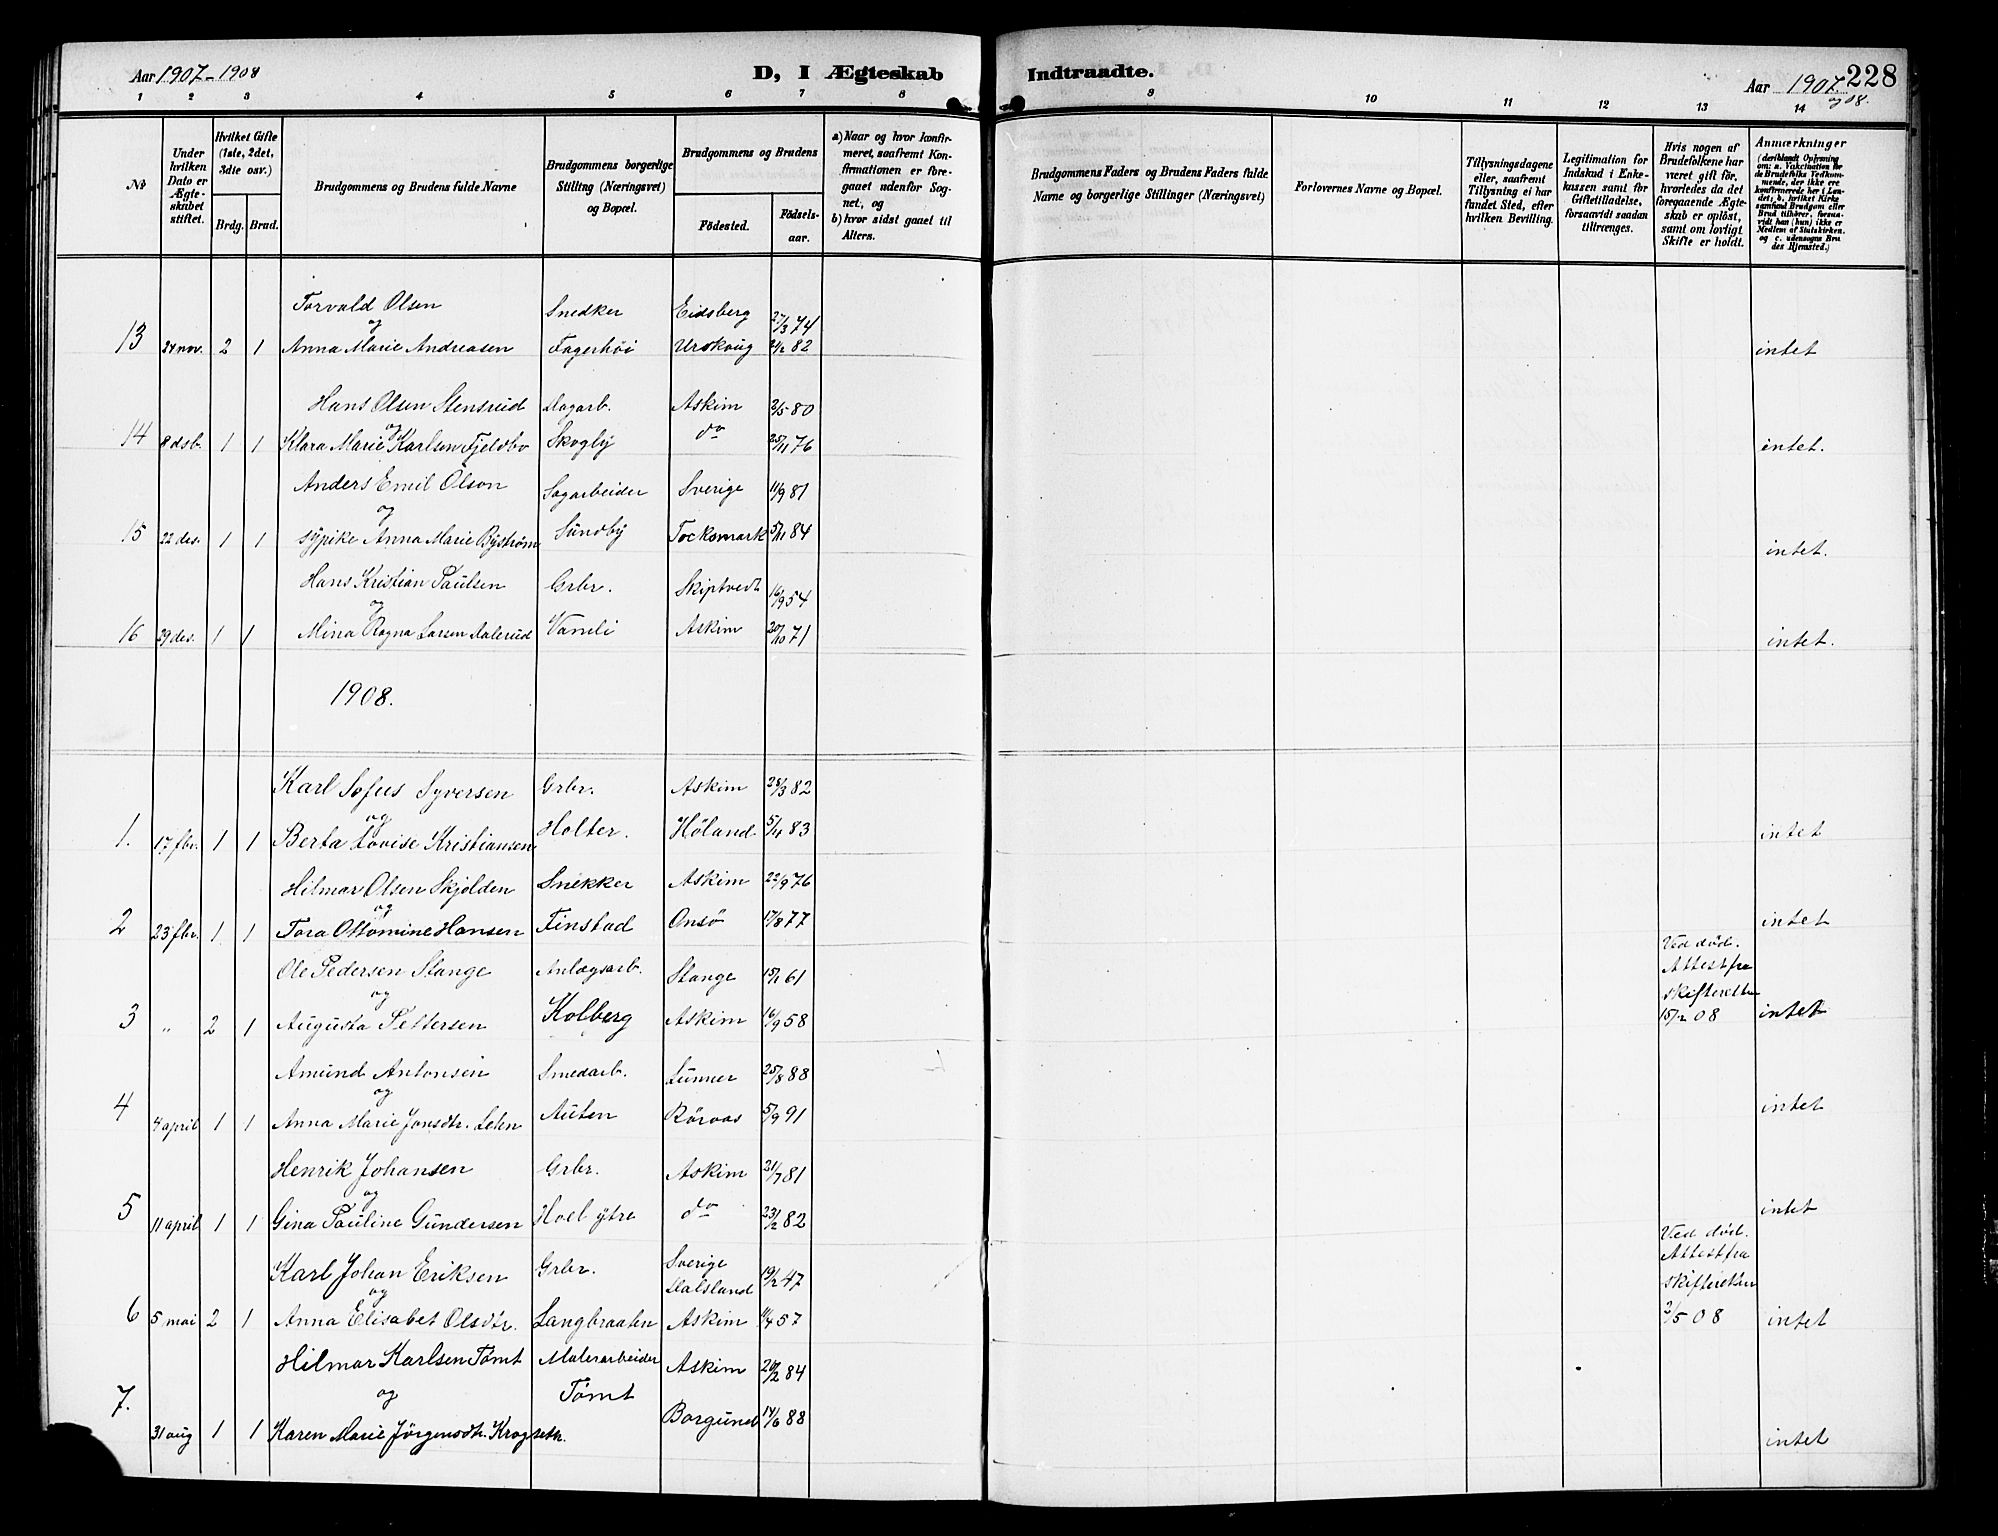 Aar 1907-1908
D, I Ægteskab
Indtraadte.
Aar 1907 og 08.
228
1 2 3 4 5 6 7 8 9 10 11 12 13 14
No
Under hvilken Dato er Ægteskabet stiftet.
Hvilket Gifte (1ste, 2det, 3die osv.)
Brdg. Brud.
Brudgommens og Brudens fulde Navne
Brudgommens borgerlige Stilling (Næringsvei) og Bopæl.
Brudgommens og Brudens
Födested.
Födsels-aar.
a) Naar og hvor konfirmeret, saafremt Konfirmationen er foregaaet udenfor Sognet, og
b) hvor sidst gaaet til Alters.
Brudgommens Faders og Brudens Faders fulde Navne og borgerlige Stillinger (Næringsvei)
Forlovernes Navne og Bopæl.
Tillysningsdagene eller, saafremt Tillysning ei har fundet Sted, efter hvilken Bevilling.
Legitimation for Indskud i Enkekassen samt for Giftetilladelse, forsaavidt saadan tiltrænges.
Hvis nogen af Brudefolkene har været gift för, hvorledes da det foregaaende Ægteskab er oplöst, samt om lovligt Skifte er holdt.
Anmærkninger (deriblandt Oplysning om: a. Vakcination for de Brudefolks Vedkommende, der ikke ere konfirmerede her i Landet; b. hvilket Kirkesamfund Brudgom eller Brud tilhörer, forsaavidt han (hun) ikke er Medlem af Statskirken, og c. udensogns Brudes Hjemsted.)
Torvald Olsen Snedker Eidsberg 27/3 74
og
13 24 nov. 2 1 Anna Marie Andreasen Fagerhöi Urskoug 21/2 82 intet
Hans Olsen Stensrud Dagarb. Askim 2/5 80
og
14 8 dsb. 1 1 Klara Marie Karlsen Fjeldbo Skogby do 25/11 76 intet.
Anders Emil Olson Sagarbeider Sverige 11/9 81
og
15 22 des. 1 1 sypike Anna Marie Byström Sundby Tocksmark 5/11 84 intet.
Hans Kristian Paulsen Grbr. Skiptvedt 16/9 54
og
16 29 des. 1 1 Mina Ragna Larsen Dalerud Vamli Askim 20/10 71 intet.
1908.
Karl Sofus Syversen Grbr. Askim 28/3 82
og
1. 17 fbr. 1 1 Berta Lovise Kristiansen Holter. Höland 5/4 83 intet
Hilmar Olsen Skjolden Snekker Askim 22/9 76
og
2 23 fbr. 1 1 Tora Ottomine Hansen Finstad Onsö 17/8 77 intet
Ole Pedersen Stange Anlægsarb. Stange 15/1 61 Ved död.
og Attest fra
skifteretten
3 " 2 1 Augusta Pettersen Kolberg Askim 16/9 58 15/2 08 intet
Amund Antonsen Smedarb. Lunner 25/8 88
og
4 4 april 1 1 Anna Marie Jonsdtr. Lelen Auten Röraas 5/9 91 intet
Henrik Johansen Grbr. Askim 21/7 81
og
5 11 april 1 1 Gina Pauline Gundersen Hoel ytre do 23/2 82 intet
Karl Johan Eriksen Grbr. Sverige Dalsland 19/2 47 Ved död.
og Attest fra
skifteretten
6 5 mai 2 1 Anna Elisabet Olsdtr. Langbraaten Askim 11/4 57 2/5 08 intet
Hilmar Karlsen Tömt Malerarbeider Askim 20/2 84
og Tömt
7. 31 aug 1 1 Karen Marie Jörgensdtr. Krogsetr. Borgund 14/6 88 intet